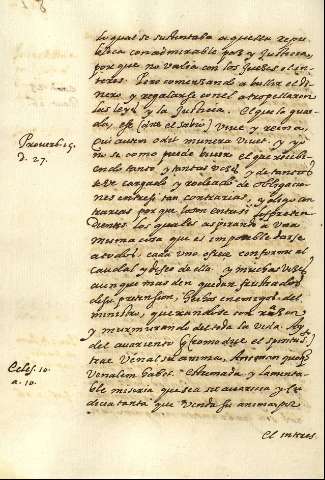 lo qual se sustentaba aquella Repu
blica con admirable paz y Justicia,
por que no valia con los Juezes el in
teres. Pero comenzando a bullir el di
nero y regalarse con el atropellaron
las leyes y la Justicia. El que lo guar
da, ese (dice el sabio) vive y reina.
Proverb. 15.
Qui autem odit munera vivet, y yo
d. 27.
no se como puede vivir el que recibi
endo tanto, y tantas vezes, y de tantos
se ve cargado y rodeado de obligacio
nes entresi tan contrarias, y digo con
trarias por que lo son entresi los preten
dientes los quales aspirando a una
misma cosa que es imposible darse
a todos, cada uno ofrece conforme al
caudal y deseo de ella, y muchas vezes
aunque mas den quedan frustrados
de su pretension, hechos enemigos del
ministro, quexandose con razon
y murmurando del toda la vida. Ay
del avariento (como dize el spiritu s.)
Ecles. 10.
trae venal su anima,
a. 10.
venalem habet. Estremada y lamenta
ble miseria que sea su avaricia y co
dicia tanta que venda su anima por
el interes